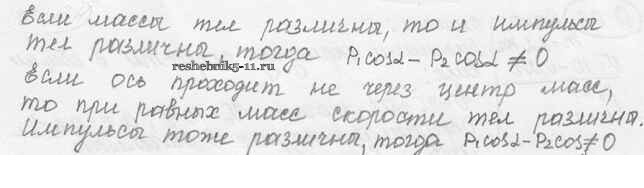 Если массы тел различны, то и импульсы
тел различны, тогда P₁cosα − P₂cosα ≠ 0
reshebnik5-11.ru
Если ось проходит не через центр масс,
то при равных масс скорости тел различны.
Импульсы тоже различны, тогда P₁cosα − P₂cos ≠ 0